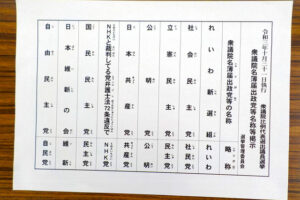 令和三年十月三十一日執行
衆議院比例代表選出議員選挙
衆議院名簿届出政党等名称等掲示
選挙管理委員会
衆議院名簿届出政党等の名称 略称
れいわ新選組 れいわ
社会民主党 社民党
立憲民主党 民主党
公明党 公明
日本共産党 共産党
NHKと裁判してる党弁護士法72条違反で NHK党
国民民主党 民主党
日本維新の会 維新
自由民主党 自民党